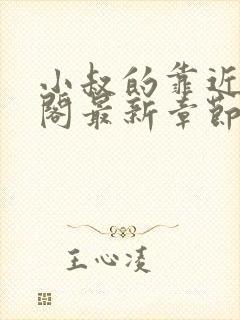 小叔的靠近
阁最新章節
王心凌